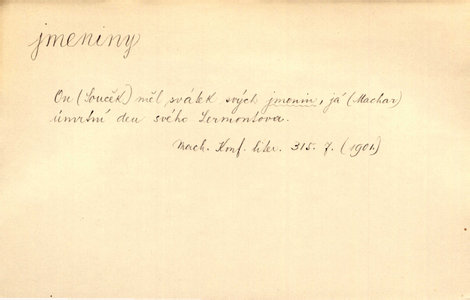 jmeniny
On (Souček) měl svátek svých jmenin, já (Machar)
úmrtní den svého Lermontova.
Mach. Konf. liter. 315. 7. (1901)